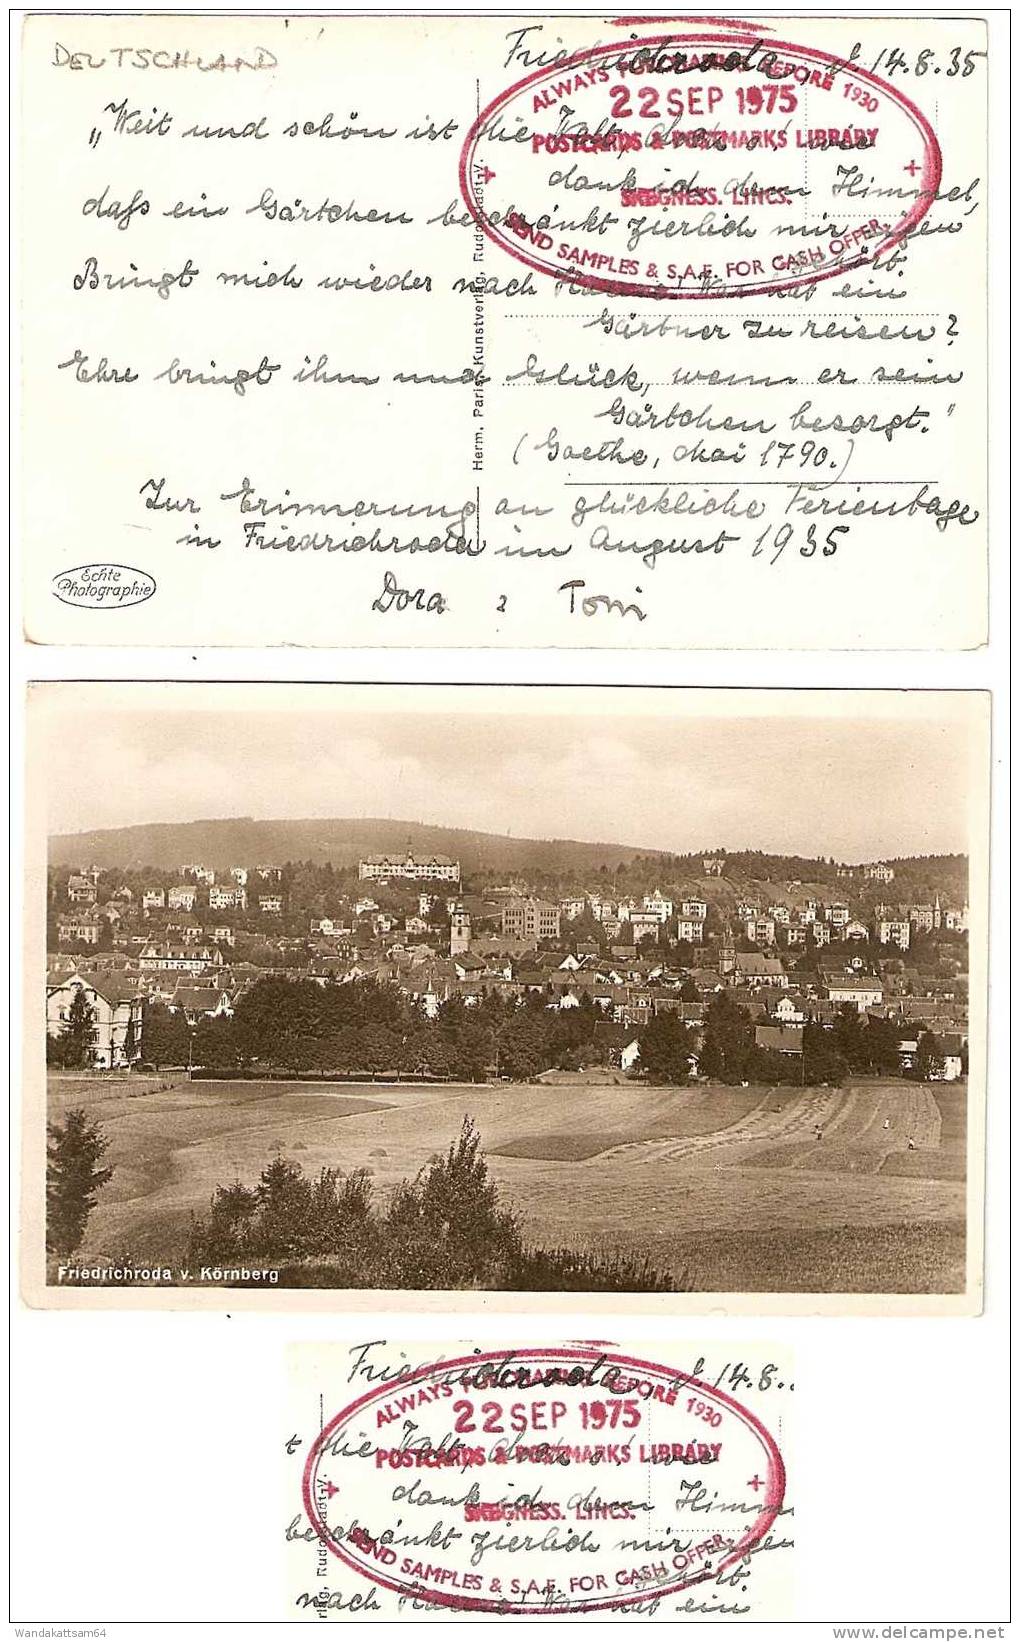 DEUTSCHLAND
Friedrichroda, d. 14.8.35
„Weit und schön ist die Welt, doch o! wie
dank ich dem Himmel,
daß ein Gärtchen beschränkt zierlich mir eigen
gehört.
Bringt mich wieder nach Hause! Was hat ein
Gärtner zu reisen?
Ehre bringt ihm und Glück, wenn er sein
Gärtchen besorgt."
(Goethe, Mai 1790.)
Zur Erinnerung an glückliche Ferientage
in Friedrichroda im August 1935
Dora Toni
Echte
Photographie
Herm. Paris, Kunstverlag, Rudolstadt-V.
ALWAYS BEFORE 1930
22 SEP 1975
POSTCARDS & POSTMARKS LIBRARY
SKEGNESS. LINCS.
SEND SAMPLES & S.A.E. FOR CASH OFFER
Friedrichroda v. Körnberg
Friedrichroda, d. 14.8.
ALWAYS BEFORE 1930
22 SEP 1975
t die Welt, doch o! wie
POSTCARDS & POSTMARKS LIBRARY
dank ich dem Himm
SKEGNESS. LINCS.
beschränkt zierlich mir eigen
SEND SAMPLES & S.A.E. FOR CASH OFFER
gehört.
nach Hause! Was hat ein
rlag, Rudolstadt-V.
Wandakattsam64
delcampe.net